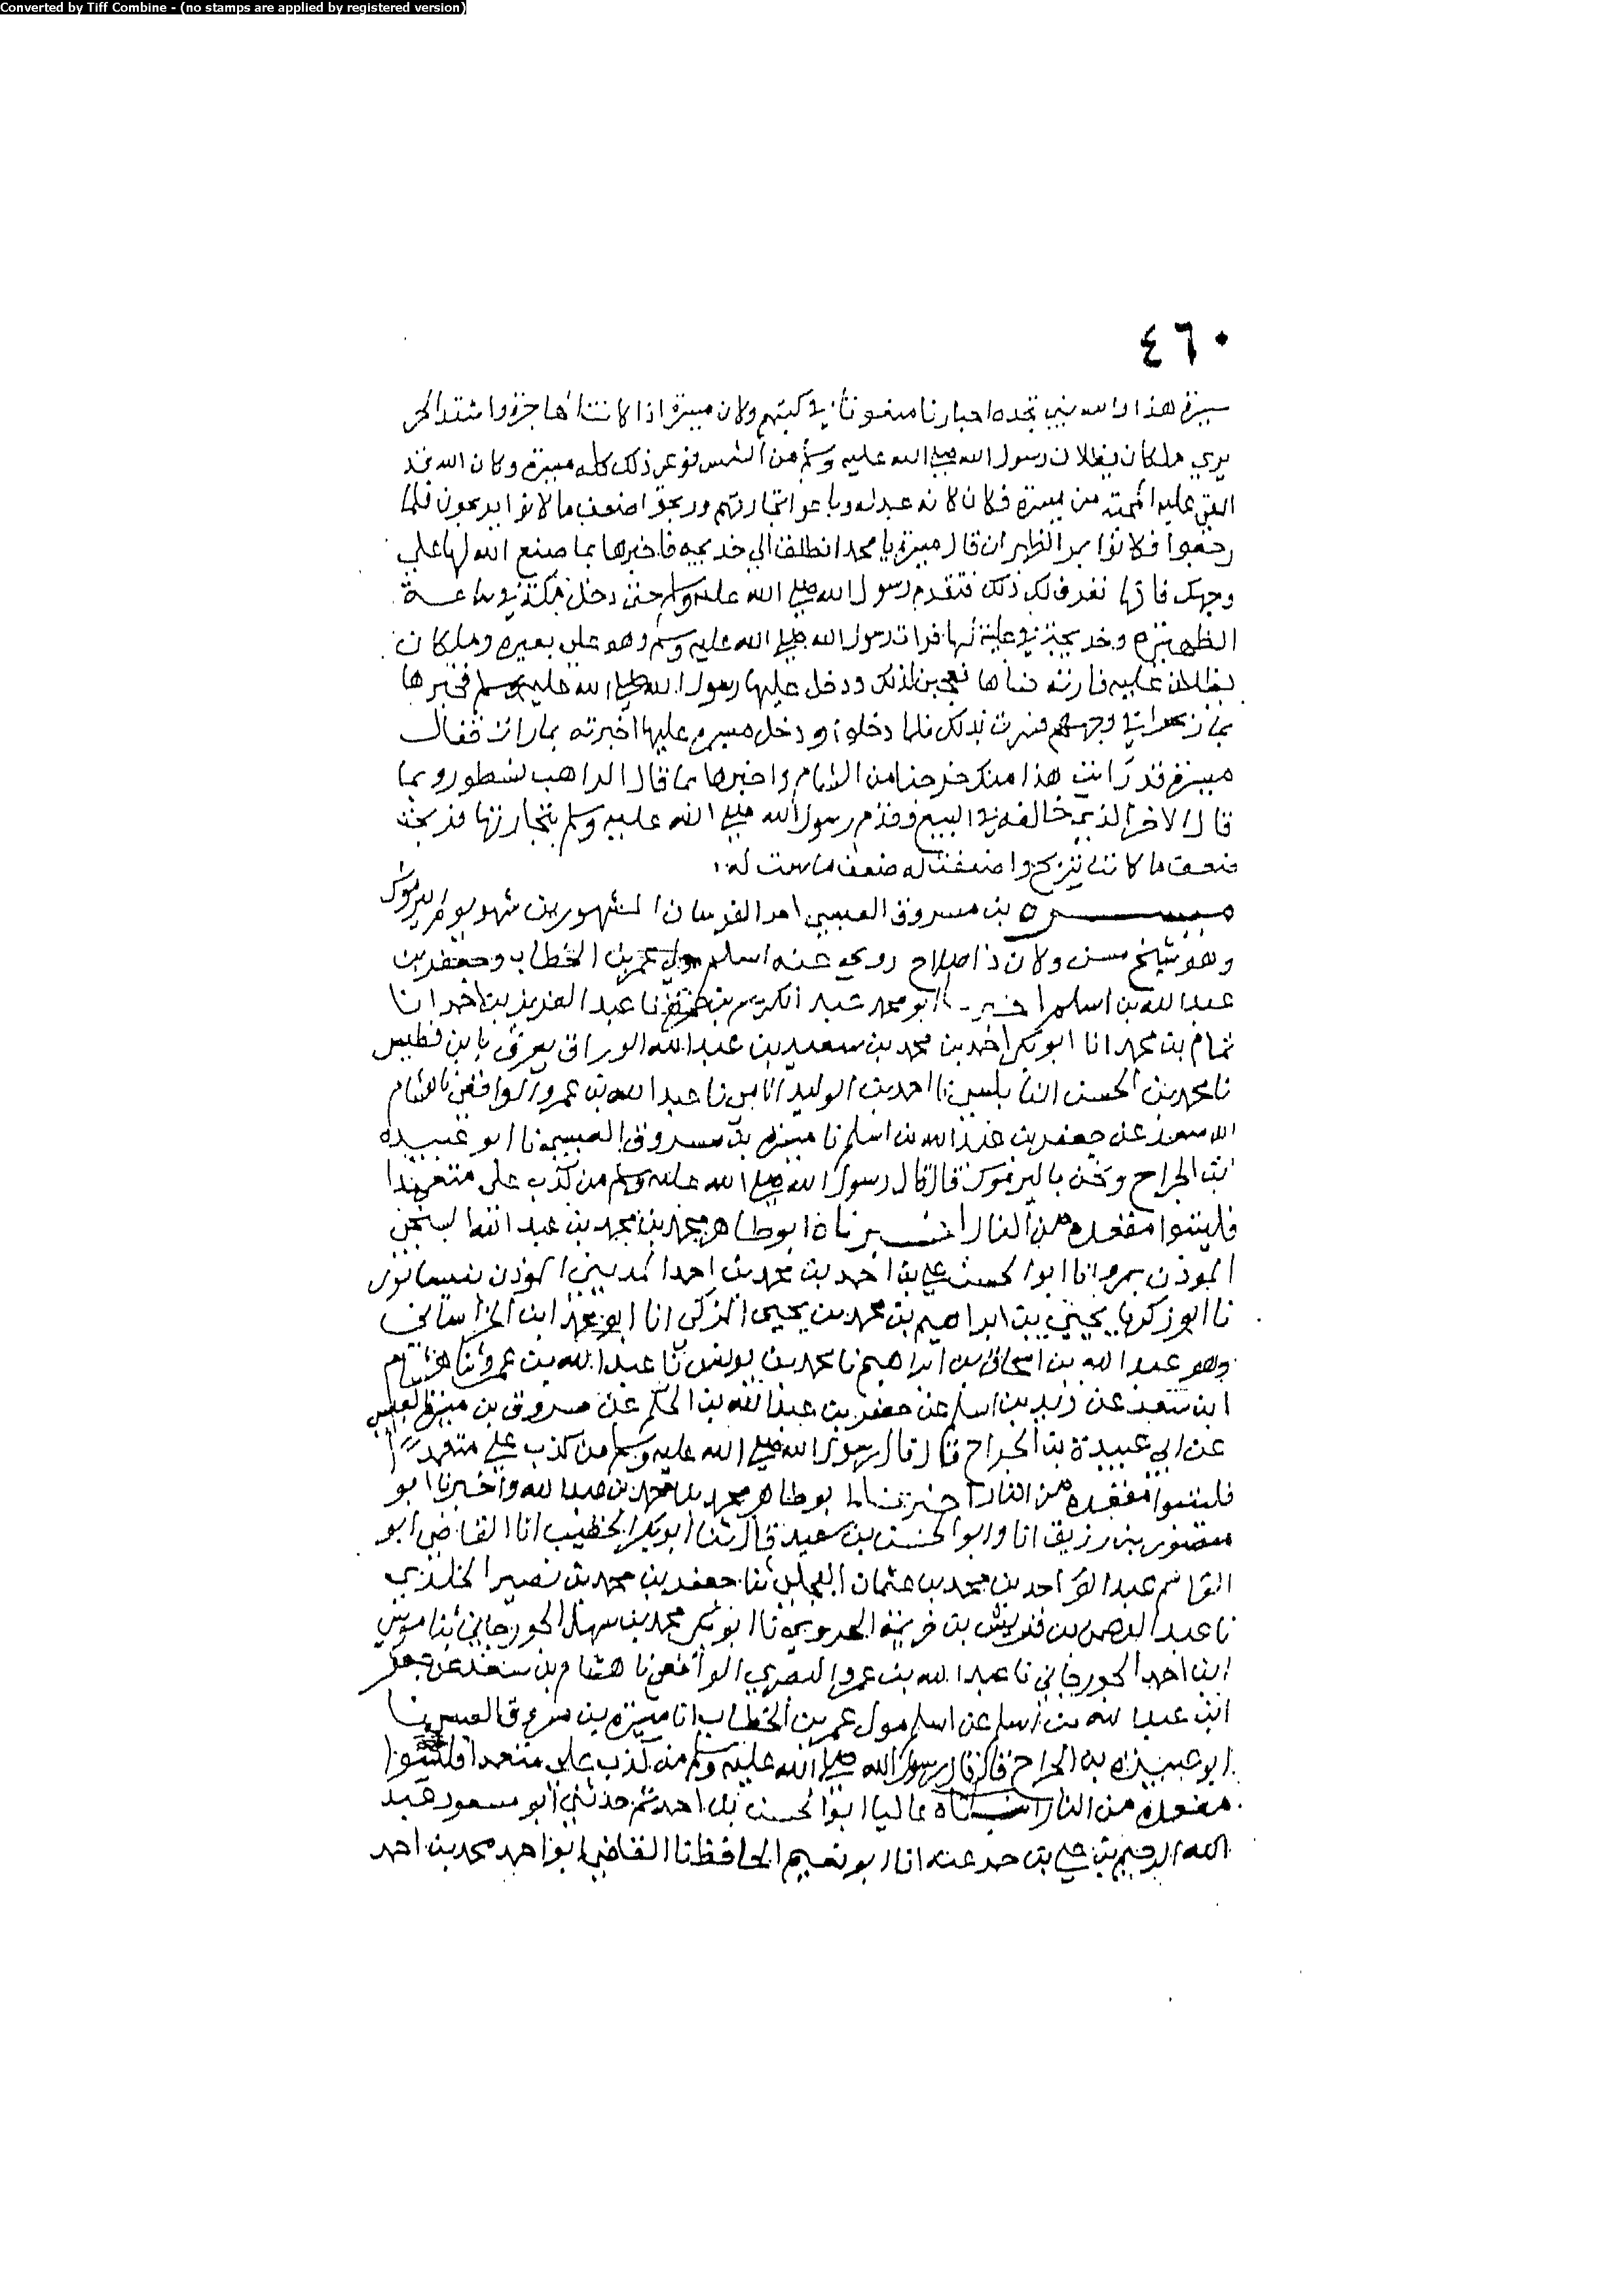 Converted by Tiff Combine - (no stamps are applied by registered version)
٤٦٠
ميسرة هذا والله نبي تجده احبارنا منعوتا في كتبهم وكان ميسرة اذا كانت الهاجرة واشتد الحر
يري ملكان يظلان رسول الله صلي الله عليه وسلم من الشمس فوعى ذلك كله ميسرة وكان الله قد
القى عليه المحبة من ميسرة فكان كانه عبد له وباعوا تجارتهم وربحوا ضعف ما كانوا يربحون فلما
رجعوا فكانوا بمر الظهران قال ميسرة يا محمد انطلق الي خديجه فاخبرها بما صنع الله لها على
وجهك فانها تعرف لك ذلك فتقدم رسول الله صلي الله عليه وسلم حتى دخل مكة في ساعة
الظهيرة وخديجة في علية لها فرات رسول الله صلي الله عليه وسلم وهو على بعيره وملكان
يظلان عليه فارته نساها فعجبن لذلك ودخل عليها رسول الله صلي الله عليه وسلم فخبرها
بما ربحوا في وجههم فسرت بذلك فلما دخل ميسرة عليها اخبرته بما رات فقال
ميسرة قد رايت هذا منذ خرجنا من الشام واخبرها بما قال الراهب نسطور وبما
قال الاخر الذي خالفه في البيع وقدم رسول الله صلي الله عليه وسلم بتجارتها فربحت
ضعف ما كانت تربح واضعفت له ضعف ما سمت له
ميسرة بن مسروق العبسي احد الفرسان المشهورين شهد يوم اليرموك
وهو شيخ مسن وكان ذا صلاح روى عنه اسلم مولي عمر بن الخطاب وجعفر بن
عبد الله بن اسلم اخبرنا ابو محمد عبد الكريم بن حمزة نا عبد العزيز بن احمد انا
تمام بن محمد انا ابو بكر احمد بن محمد بن سعيد بن عبيد الله الوراق يعرف بابن فطيس
نا محمد بن الحسن النابلسي نا احمد بن الوليد نا عبد الله بن عمرو الواقفي نا هشام
بن سعد عن جعفر بن عبد الله بن اسلم نا ميسرة بن مسروق العبسي نا ابو عبيدة
بن الجراح ونحن باليرموك قال قال رسول الله صلي الله عليه وسلم من كذب على متعمدا
فليتبوا مقعده من النار اخبرناه ابو طاهر محمد بن محمد بن عبد الله السنجي
الموذن بمرو انا ابو الحسن علي بن احمد بن محمد بن احمد المديني الموذن بنيسابور
نا ابو زكريا يحيى بن ابراهيم بن محمد بن يحيى المزكى انا ابو محمد ابن الخراساني
وهو عبد الله بن اسحاق بن ابراهيم نا محمد بن يونس نا عبد الله بن عمرو نا هشام
ابن سعد عن زيد بن اسلم عن جعفر بن عبد الله بن الحكم عن مسروق بن ميسرة العبسي
عن ابي عبيدة بن الجراح قال قال رسول الله صلي الله عليه وسلم من كذب علي متعمدا
فليتبوا مقعده من النار اخبرنا ابو طاهر محمد بن محمد بن عبد الله واخبرنا ابو
منصور بن رزيق انا وابو الحسن بن سعيد قال ثنا ابو بكر الخطيب انا القاضي ابو
القاسم عبد الواحد بن محمد بن عثمان البجلي ثنا جعفر بن محمد بن نصير الخلدي
نا عبد الرحمن بن قريش بن خزيمة الهروي نا ابو بكر محمد بن سهل الجوزجاني ثنا موسى
ابن احمد الجوزجاني نا عبد الله بن عمرو البصري الواقعي نا هشام بن سعد عن جعفر
ابن عبد الله بن اسلم عن اسلم مولى عمر بن الخطاب انا ميسرة بن مسروق العبسي نا
ابو عبيدة بن الجراح قال قال رسول الله صلي الله عليه وسلم من كذب على متعمدا فليتبوا
مقعده من النار اخبرناه عاليا ابو الحسن بن احمد ثم حدثني ابو مسعود عبد
الرحيم بن علي بن حمد عنه انا ابو نعيم الحافظ نا القاضي ابو احمد محمد بن احمد